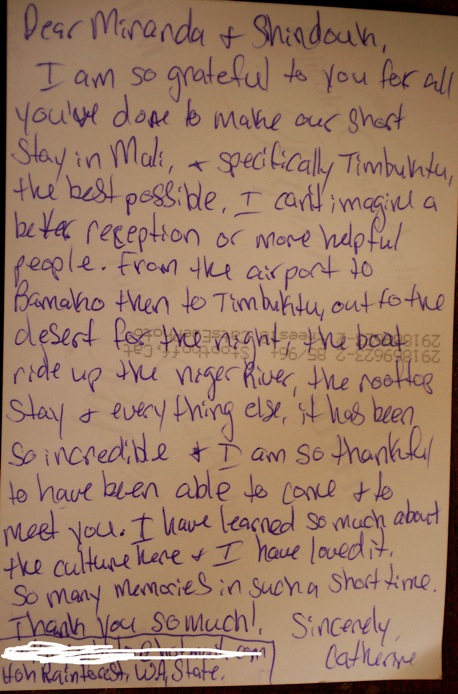 Dear Miranda & Shindouk,
I am so grateful to you for all
you've done to make our short
stay in Mali, & specifically Timbuktu,
the best possible. I can't imagine a
better reception or more helpful
people. From the airport to
Bamako then to Timbuktu, out to the
desert for the night, the boat
ride up the niger River, the rooftop
stay & everything else, it has been
so incredible & I am so thankful
to have been able to come & to
meet you. I have learned so much about
the culture here & I have loved it.
So many memories in such a short time.
Thank you so much!. Sincerely,
Catherine
Hoh Rainforest, WA, State.